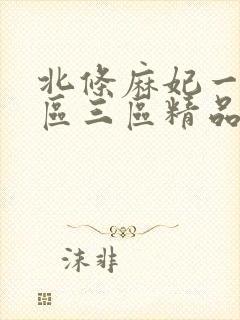 北條麻妃一
區三區精品
沫非